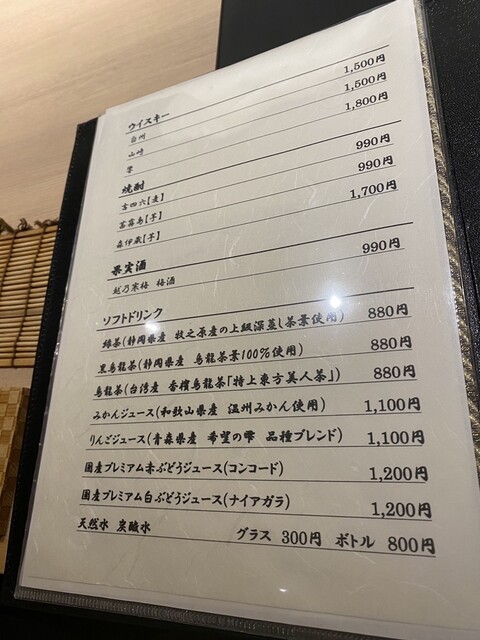 ウイスキー
白州 1,500円
山崎 1,500円
響 1,800円
焼酎
吉四六【麦】 990円
富乃宝山【芋】 990円
森伊蔵【芋】 1,700円
果実酒
越乃寒梅 梅酒 990円
ソフトドリンク
緑茶(静岡県産 牧之原産の上級深蒸し茶葉使用) 880円
黒烏龍茶(静岡県産 烏龍茶葉100%使用) 880円
烏龍茶(台湾産 香檳烏龍茶「特上東方美人茶」) 880円
みかんジュース(和歌山県産 温州みかん使用) 1,100円
りんごジュース(青森県産 希望の雫 品種ブレンド) 1,100円
国産プレミアム赤ぶどうジュース(コンコード) 1,200円
国産プレミアム白ぶどうジュース(ナイアガラ) 1,200円
天然水 炭酸水 グラス 300円 ボトル 800円